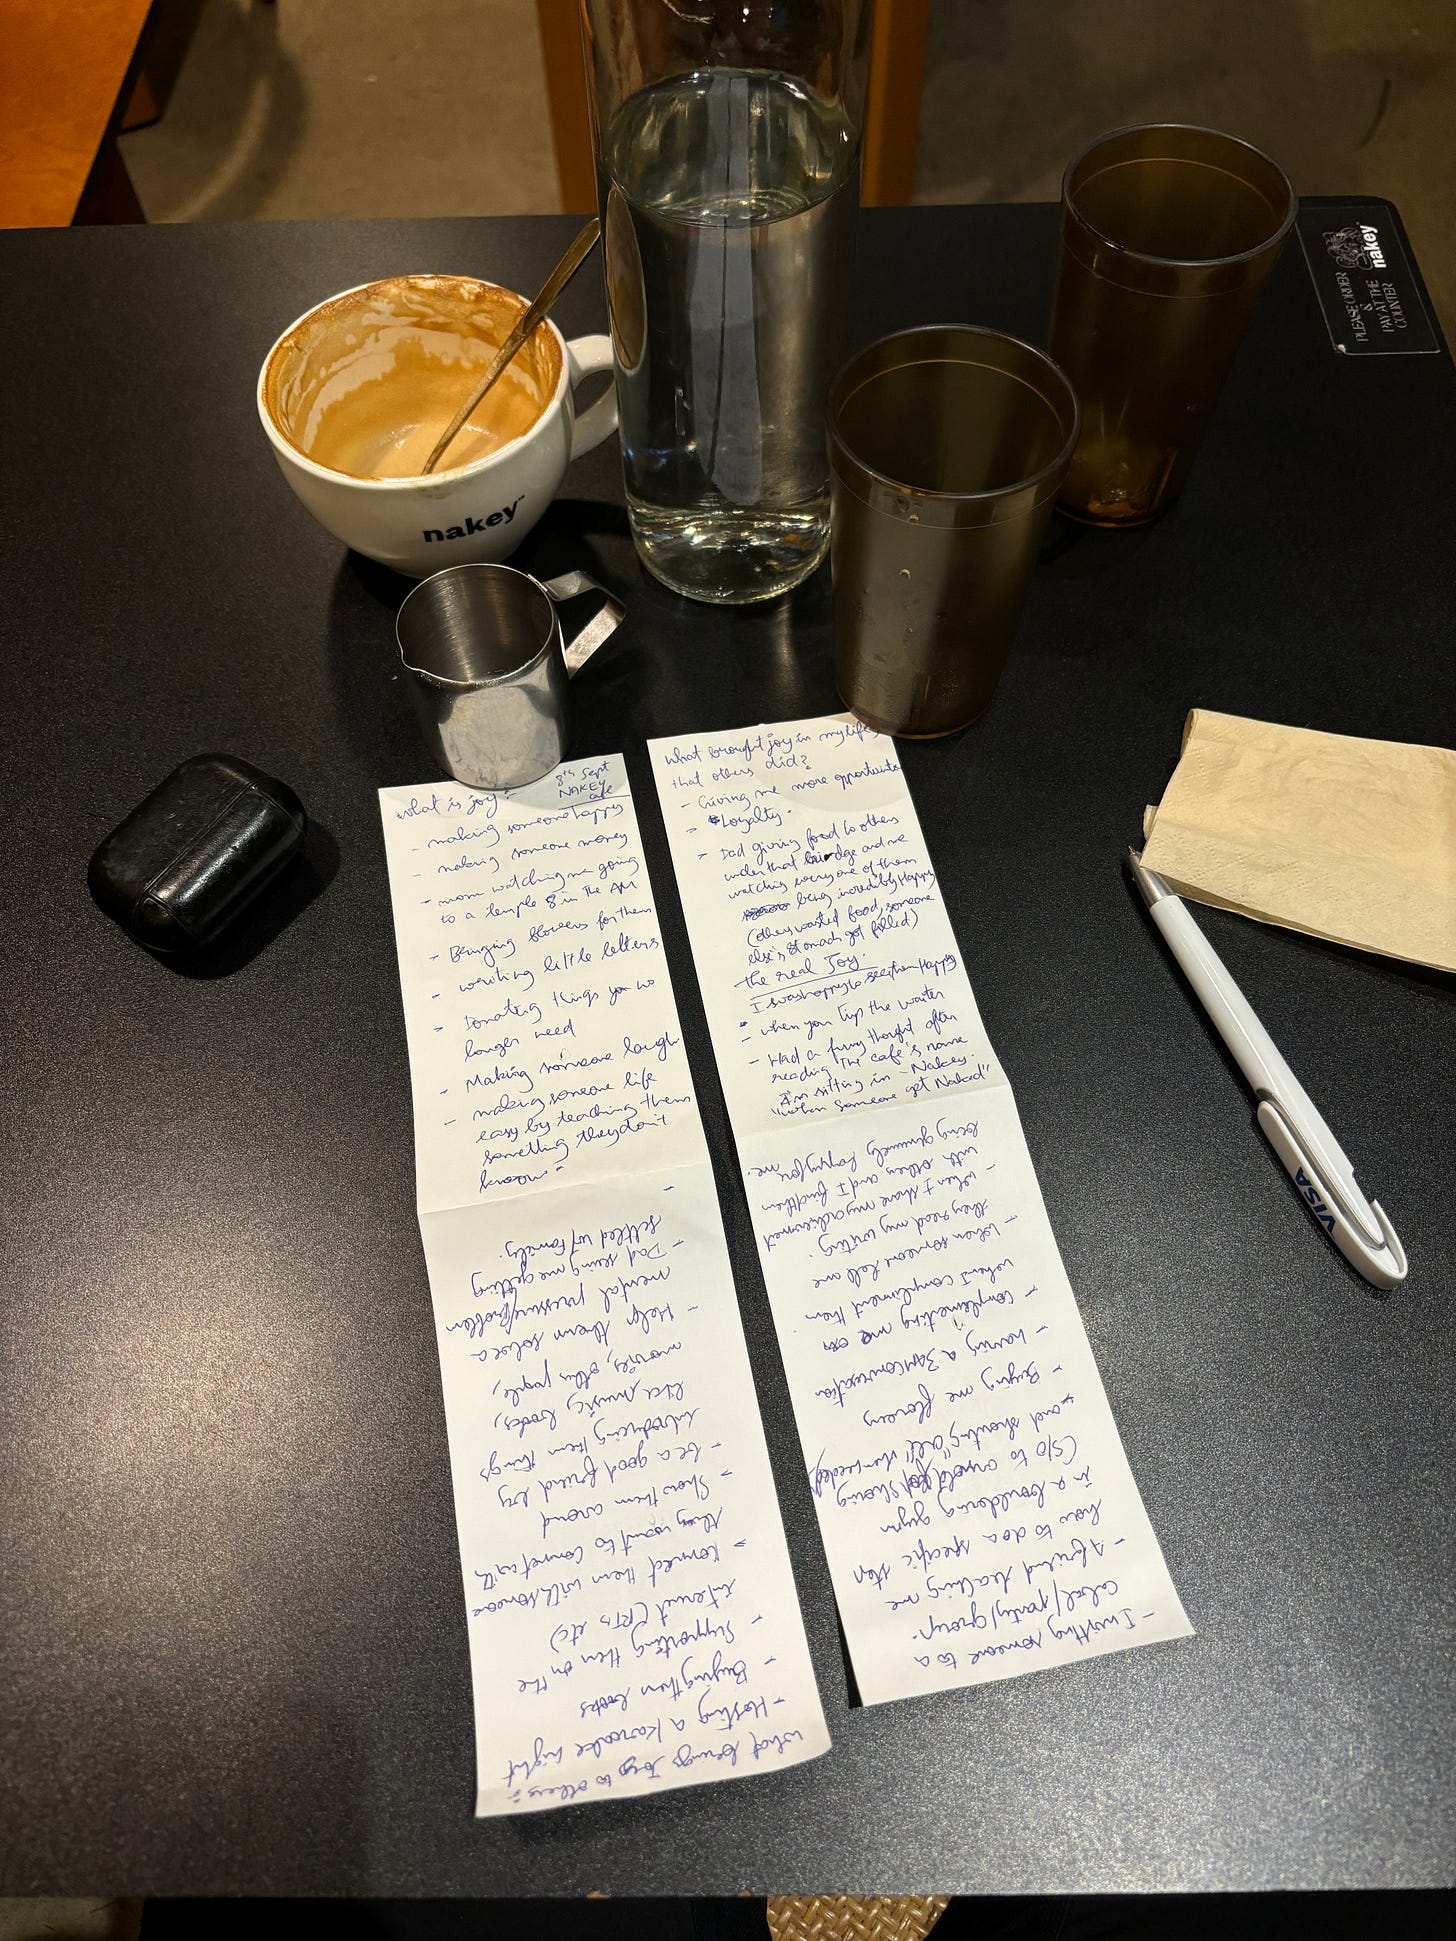 nakey
PLEASE ORDER
&
PAY AT THE
COUNTER
nakey
VISA
8th Sept
NAKEY
cafe
what is joy?
- making someone happy
- making someone money
- mom watching me going
to a temple 8 in the AM
- Bringing flowers for them
- writing little letters
- Donating things you no
longer need
- Making someone laugh
- making someone life
easy by teaching them
something they don't
know
-
what brings Joy to others
- Hosting a karaoke night
- Buying them books
- Supporting them on the
internet (RTs etc)
- Connect them with someone
they want to connect with
- Show them around
- be a good friend by
introducing them things
like music, books,
movies, other people,
- Help them solve a
mental pressure/problem
- Dad seeing me getting
settled w/ family.
what brought joy in my life
that others did?
- Giving me more opportunities
- Loyalty.
- Dad giving food to others
under that bridge and me
watching everyone of them
being incredibly Happy
(others wasted food, someone
else's stomach got filled)
the real Joy.
I was happy to see them Happy
- when you tip the waiter
- Had a funny thought after
reading the cafe's name
I'm sitting in - Nakey.
"when someone get Naked"
- Inviting someone to a
/party/group.
- A friend teaching me
how to do a specific step
in a bouldering gym
(S/O to showing
and shouting
- Buying me flowers
- having a 3AM conversation
- Complimenting me
when I compliment them
- When someone tell me
they read my writing.
- when I share my achievement
with others and I find them
being genuinely happy for me.